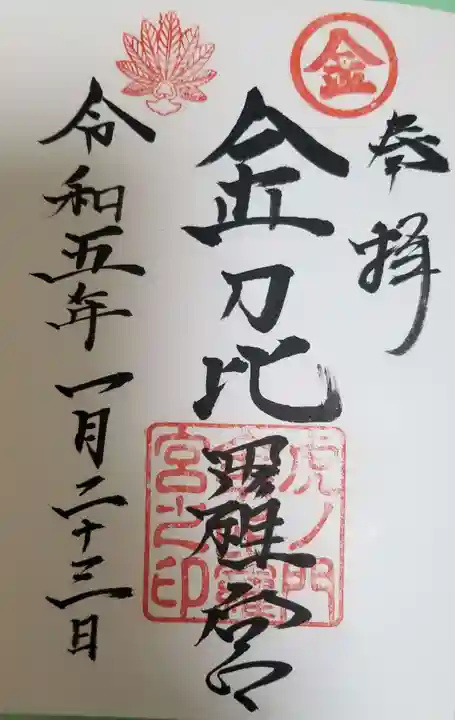 奉拝
金
金刀比羅宮
虎ノ門
金刀比羅
宮之印
令和五年一月二十三日